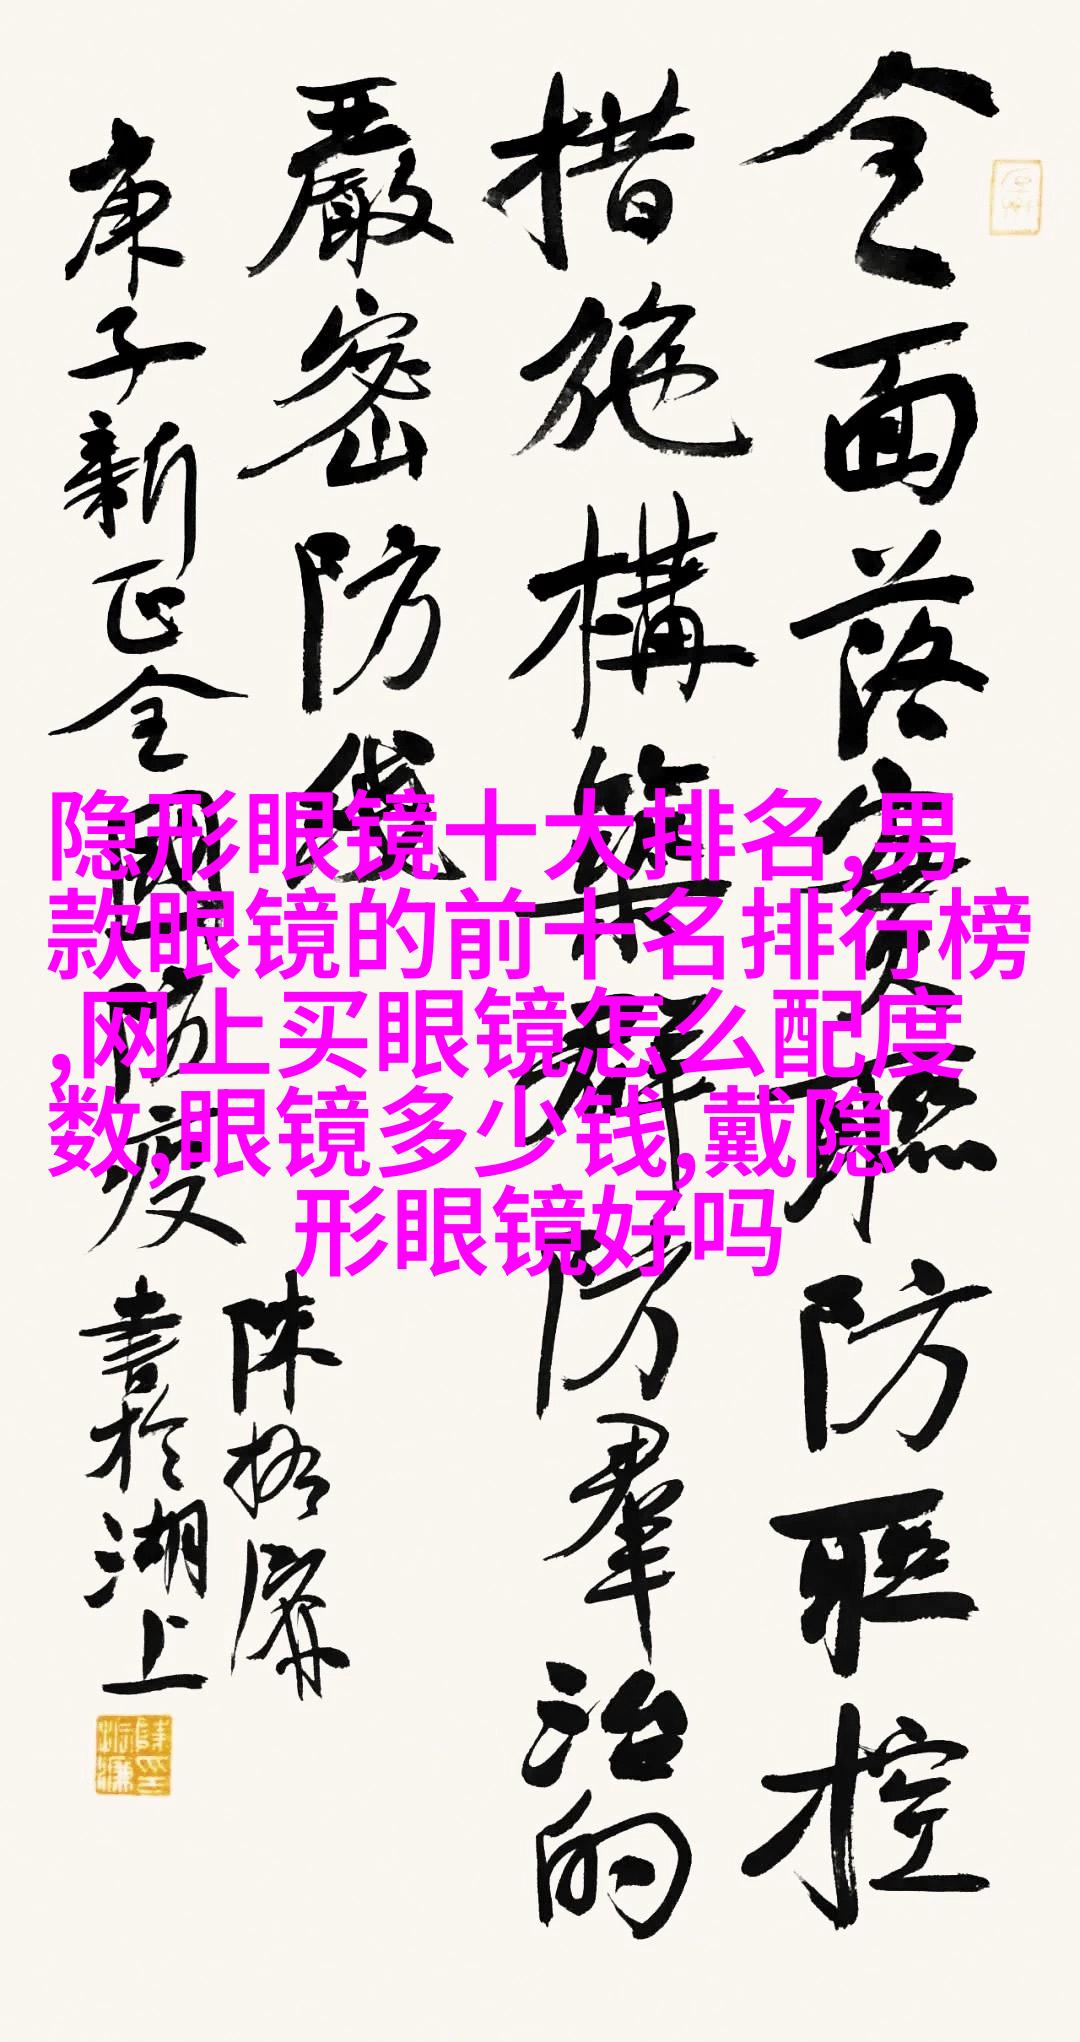 全面落實聯防聯控
措施構築群防羣治的
嚴密防线
庚子新正全國防疫
書於湖上
隐形眼镜十大排名,男
款眼镜的前十名排行榜
,网上买眼镜怎么配度
数,眼镜多少钱,戴隐
形眼镜好吗